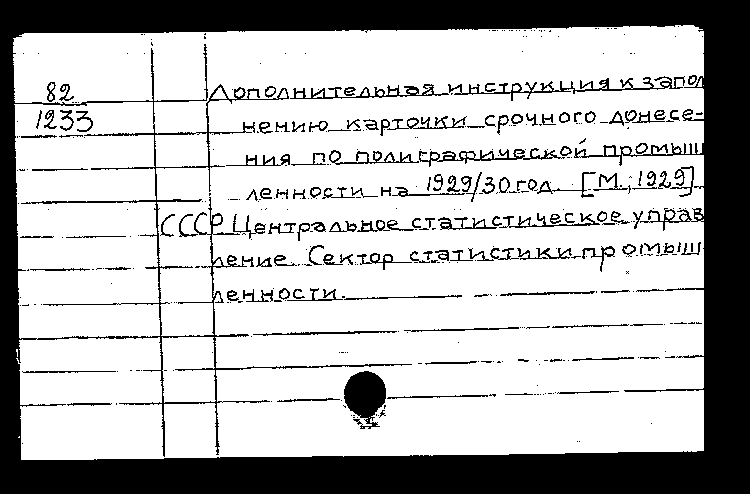 82
1233
Дополнительная инструкция к запол
нению карточки срочного донесе-
ния по полиграфической промыш
ленности на 1929/30 год. [М., 1929]
СССР Центральное статистическое управ
ление. Сектор статистики промыш
ленности.